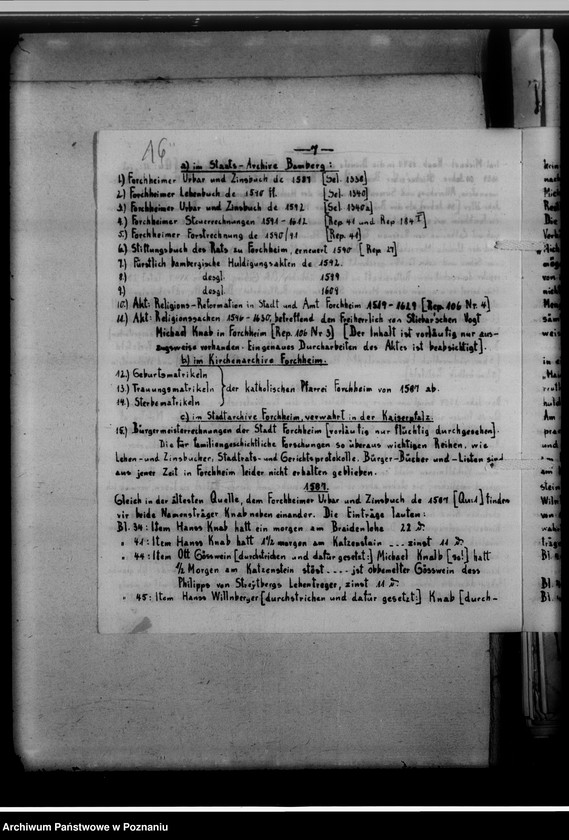 16
—7—
a) im Staats-Archive Bamberg:
1) Forchheimer Urbar und Zinsbuch de 1587 [Sel. 1338]
2) Forchheimer Lehenbuch de 1540 ff. [Sel. 1340]
3) Forchheimer Urbar und Zinsbuch de 1592 [Sel. 1340a]
4) Forchheimer Steuerrechnungen 1591-1612 [Rep. 41 und Rep. 184 I]
5) Forchheimer Forstrechnung de 1590/91 [Rep. 41]
6) Stiftungsbuch des Rats zu Forchheim, erneuert 1590 [Rep. 27]
7) Fürstlich bambergische Huldigungsakten de 1592.
8) desgl. 1599
9) desgl. 1609
10) Akt: Religions-Reformation in Stadt und Amt Forchheim 1519-1629 [Rep. 106 Nr. 4]
11) Akt: Religionssachen 1596-1630, betreffend den Freiherrlich von Stiebar'schen Vogt
Michael Knab in Forchheim [Rep. 106 Nr. 3] [Der Inhalt ist vorläufig nur aus-
zugsweise vorhanden. Ein genaues Durcharbeiten des Aktes ist beabsichtigt].
b) im Kirchenarchive Forchheim.
12.) Geburtsmatrikeln
13.) Trauungsmatrikeln der katholischen Pfarrei Forchheim von 1587 ab.
14.) Sterbematrikeln
c) im Stadtarchive Forchheim, verwahrt in der Kaiserpfalz:
15) Bürgermeisterrechnungen der Stadt Forchheim [vorläufig nur flüchtig durchgesehen].
Die für familiengeschichtliche Forschungen so überaus wichtigen Reihen, wie
Lehen- und Zinsbücher, Stadtrats- und Gerichtsprotokolle, Bürger-Bücher und -Listen sind
aus jener Zeit in Forchheim leider nicht erhalten geblieben.
1587.
Gleich in der ältesten Quelle, dem Forchheimer Urbar und Zinsbuch de 1587 [Que.1] finden
wir beide Namensträger Knab neben einander. Die Einträge lauten:
Bl. 34: Item Hanss Knab hatt ein morgen am Braidenlohe 22 ₰.
" 41: Item Hanns Knab hatt 1½ morgen am Katzenstain ... zinst 11 ₰.
" 44: Item Ott Gösswein [durchstrichen und dafür gesetzt:] Michael Knalb [so!] hatt
½ Morgen am Katzenstein stöst .... jst obbemelter Gösswein dess
Philipps von Streytbergs Lehentreger, zinst 11 ₰.
" 45: Item Hanss Willnberger [durchstrichen und dafür gesetzt:] Knab [durch-
Archiwum Państwowe w Poznaniu